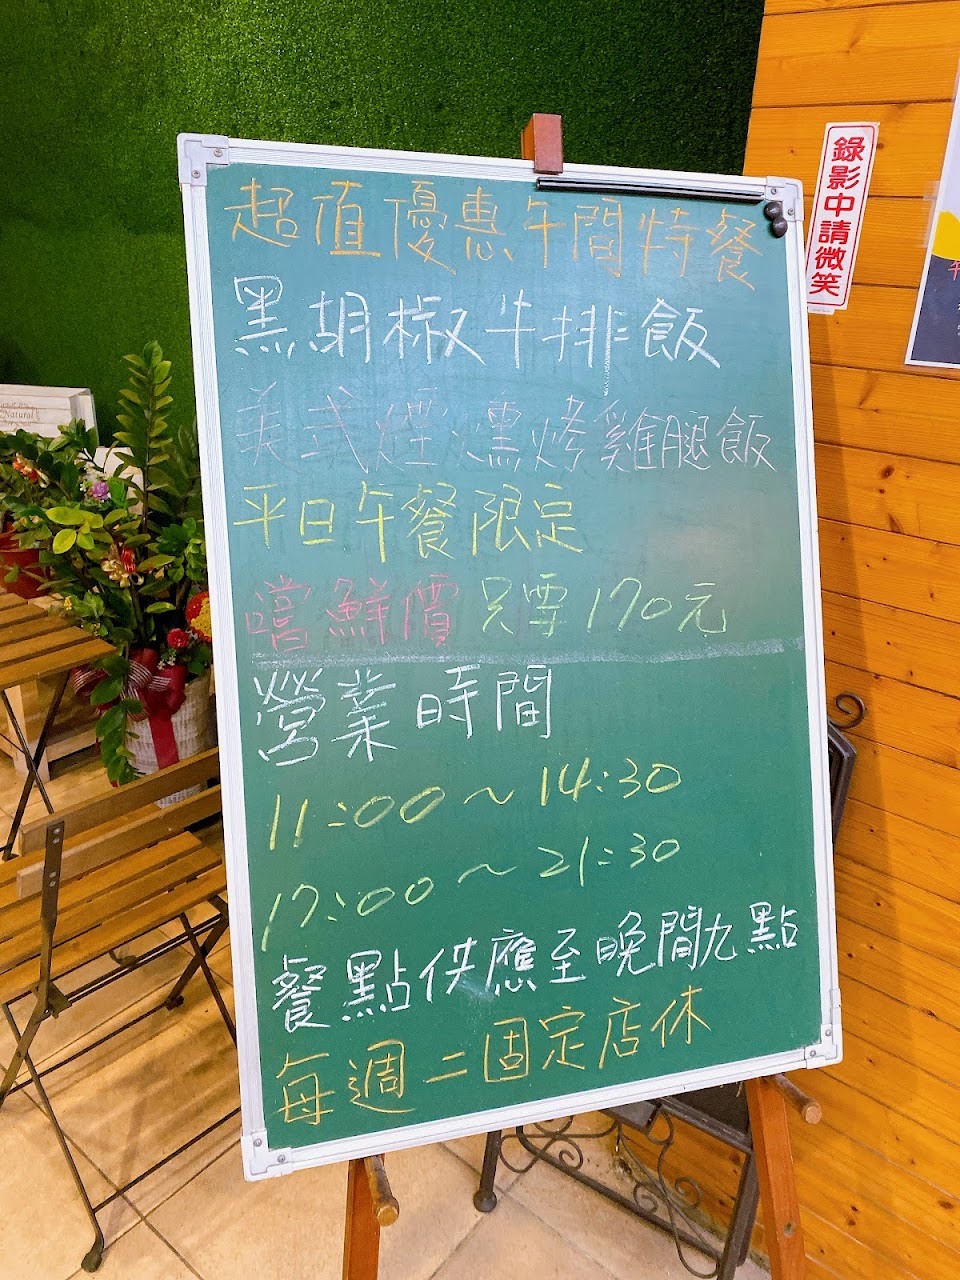 超值優惠午間特餐
黑胡椒牛排飯
美式煙燻烤雞腿飯
平日午餐限定
嚐鮮價 只要170元
營業時間
11:00～14:30
17:00～21:30
餐點供應至晚間九點
每週二固定店休
錄影中請微笑
Natural